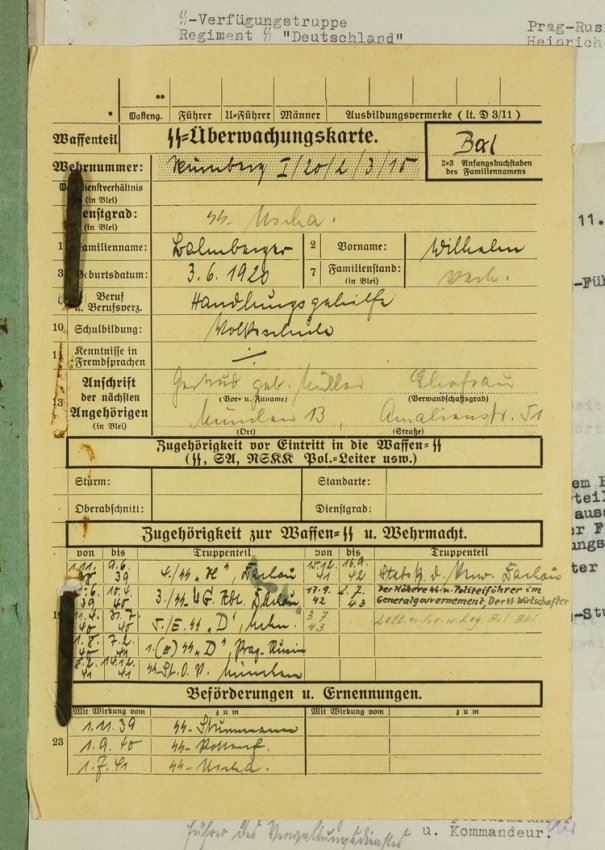 ᛋᛋ-Verfügungstruppe
Regiment ᛋᛋ "Deutschland"
Prag-Rusi
Heinrich
* ** Waffeng. Führer U=Führer Männer Ausbildungsvermerke (lt. D 3/11)
Waffenteil ᛋᛋ=Überwachungskarte. Bal
2=3 Anfangsbuchstaben des Familiennamens
Wehrnummer: Nürnberg I/20/2/3/15
(in Blei)
Dienstgrad: ᛋᛋ-Uscha.
(in Blei)
1 Familienname: Balmberger 2 Vorname: Wilhelm
3 Geburtsdatum: 3.6.1920 7 Familienstand: verh.
(in Blei)
8 Beruf u. Berufsverz. Handlungsgehilfe
10 Schulbildung: Volksschule
11 Kenntnisse in Fremdsprachen —
13 Anschrift der nächsten Angehörigen (in Blei)
Gertrud geb. Müller Ehefrau
(Vor= u. Zuname) (Verwandschaftsgrad)
München 13, Amalienstr. 51
(Ort) (Straße)
Zugehörigkeit vor Eintritt in die Waffen=ᛋᛋ
(ᛋᛋ, SA, NSKK Pol.=Leiter usw.)
Sturm: Standarte:
Oberabschnitt: Dienstgrad:
Zugehörigkeit zur Waffen=ᛋᛋ u. Wehrmacht.
von bis Truppenteil von bis Truppenteil
1.11. 9.6. 39 4./ᛋᛋ "H", Dachau 15.12. 41 16.9. 42 Dachau
39 10.4. 40 Dachau 17.9. 42 2.7. 43 Der Höhere ᛋᛋ-u. Polizeiführer im
Generalgouvernement, Der ᛋᛋ-Wirtschafter
11.4. 40 31.7. 40 5./E. ᛋᛋ "D", 3.7. 43
1.8. 40 7.2. 41 1.(E) ᛋᛋ "D", Prag-Rusin
8.2. 41 14.12. 41 ᛋᛋ-St.O.V. München
Beförderungen u. Ernennungen.
Mit Wirkung vom zum Mit Wirkung vom zum
1.11.39 ᛋᛋ-Sturmmann
23 1.9.40 ᛋᛋ-Rottenf.
1.7.41 ᛋᛋ-Uscha.
11.
-Füh
Führer des Verwaltungsdienstes
u. Kommandeur.